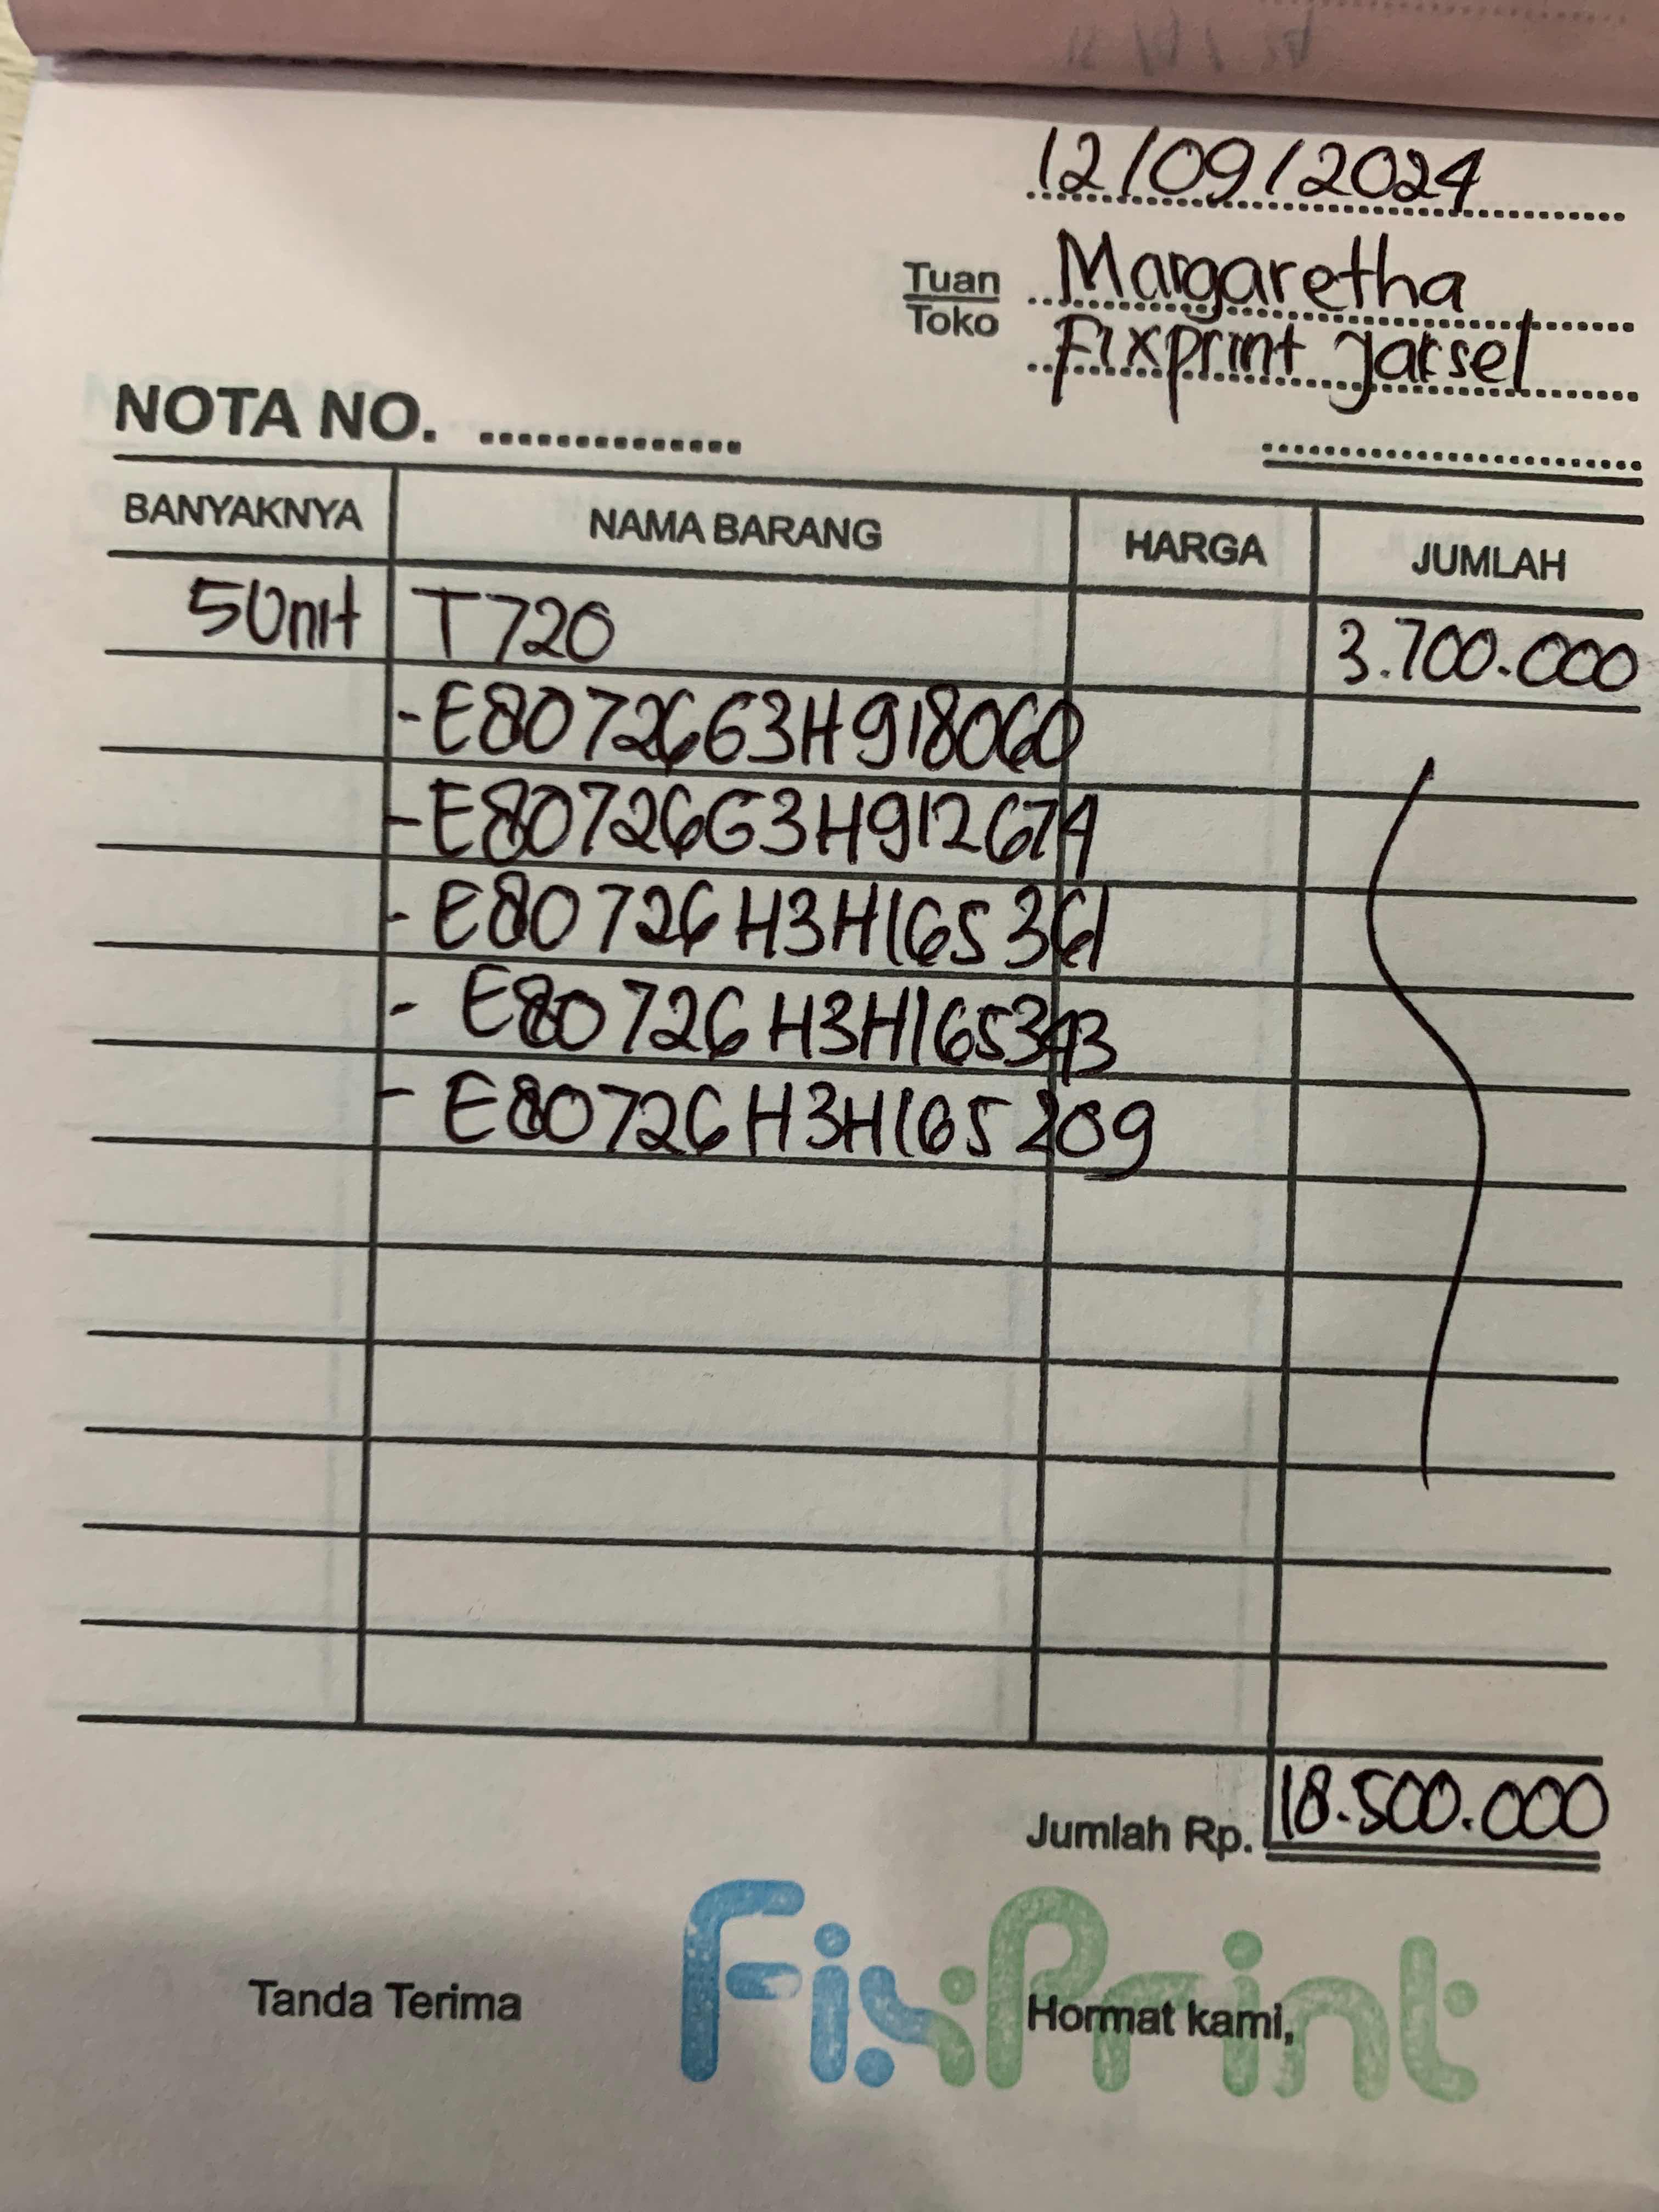 12/09/2024
Tuan Margaretha
Toko Fixprint Jaksel
NOTA NO. ..............
BANYAKNYA NAMA BARANG HARGA JUMLAH
5 Unit T720 3.700.000
- E80726G3H918060
- E80726G3H912674
- E80726H3H165361
- E80726H3H165343
- E80726H3H165209
Jumlah Rp. 18.500.000
FixPrint
Tanda Terima Hormat kami,